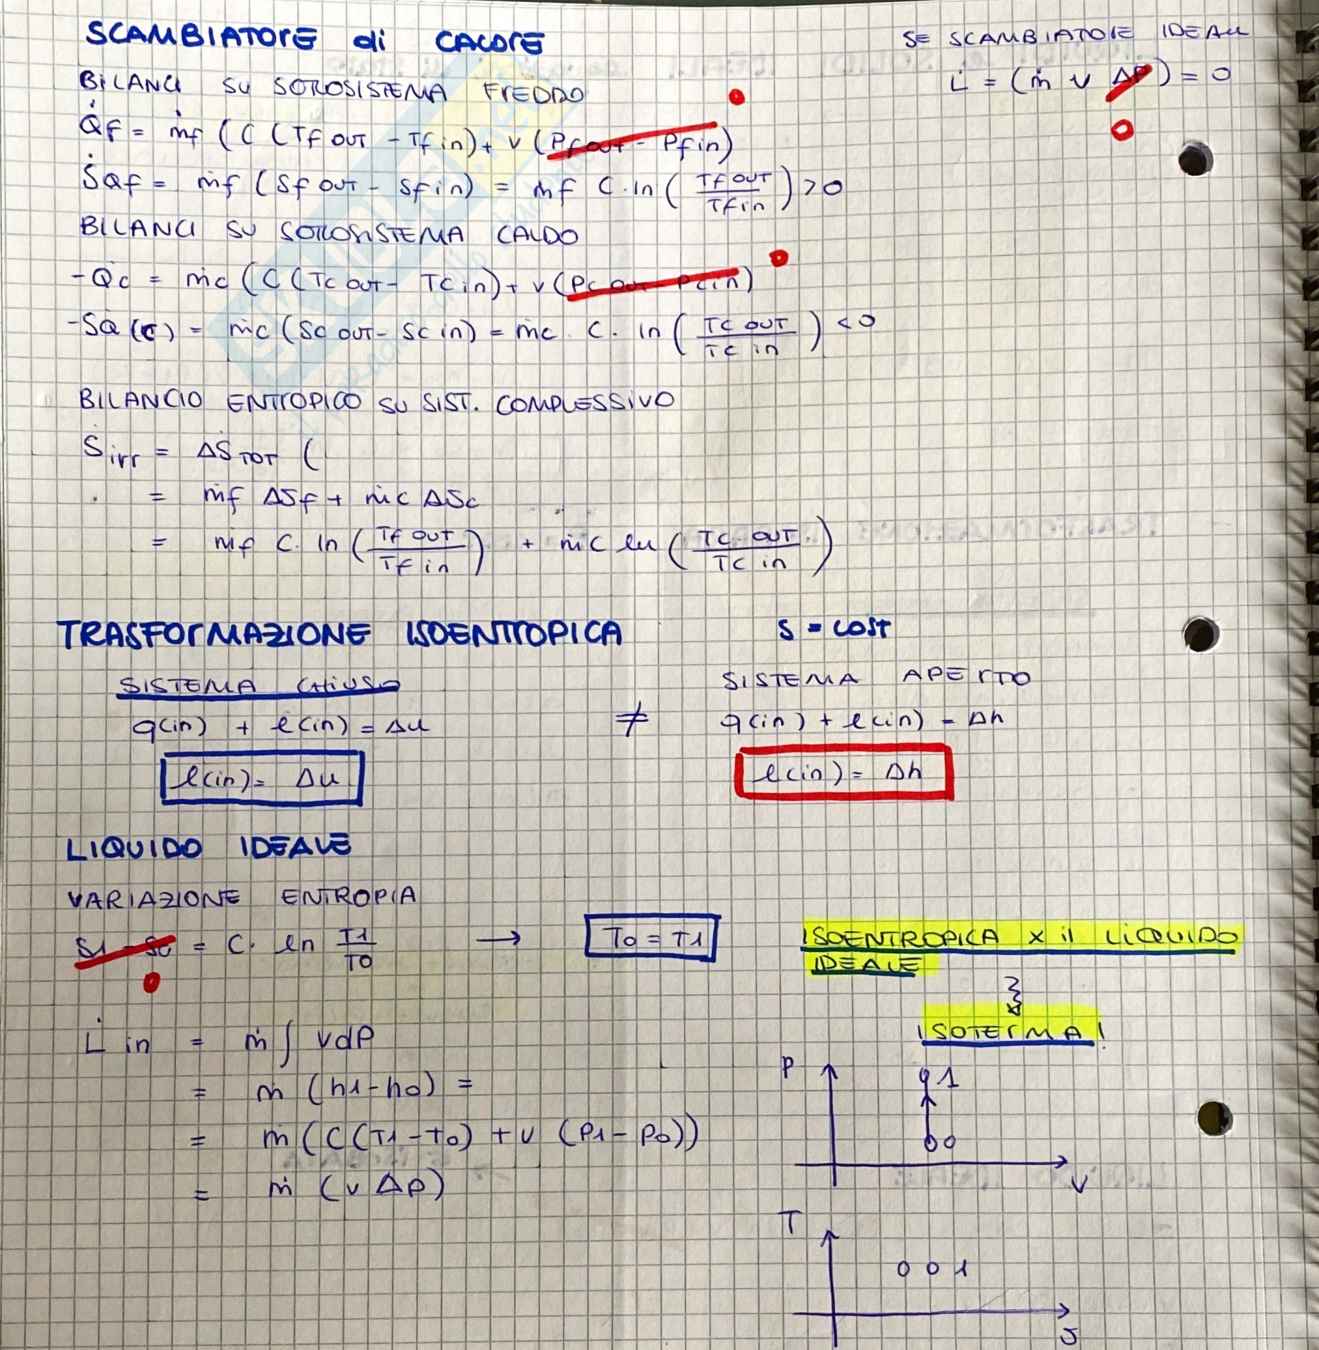 SCAMBIATORE di CALORE
SE SCAMBIATORE IDEALE
L̇ = (ṁ v ΔP) = 0
BILANCI SU SOTTOSISTEMA FREDDO
Q̇F = ṁf (C (TF OUT - TF in) + v (PF OUT - PF in)
ṠQF = ṁf (SF OUT - SF in) = ṁf C. ln (TF OUT / TF in) > 0
BILANCI SU SOTTOSISTEMA CALDO
-Q̇C = ṁc (C (TC OUT - TC in) + v (PC OUT - PC in)
-SQ (C) = ṁc (SC OUT - SC in) = ṁc . C. ln (TC OUT / TC in) < 0
BILANCIO ENTROPICO SU SIST. COMPLESSIVO
Ṡirr = ΔṠTOT (
= ṁf ΔSF + ṁc ΔSC
= ṁf C. ln (TF OUT / TF in) + ṁc ln (TC OUT / TC in)
TRASFORMAZIONE ISOENTROPICA S = COST
SISTEMA CHIUSO SISTEMA APERTO
q(in) + l(in) = Δu ≠ q(in) + l(in) = Δh
l(in) = Δu l(in) = Δh
LIQUIDO IDEALE
VARIAZIONE ENTROPIA
S1 - S0 = C. ln T1 / T0 → T0 = T1
0
ISOENTROPICA x il LIQUIDO
IDEALE
ISOTERMA!
L̇ in = ṁ ∫ vdP
= ṁ (h1 - h0) =
= ṁ (C (T1 - T0) + v (P1 - P0))
= ṁ (v ΔP)
P
1
0
V
T
0 1
S